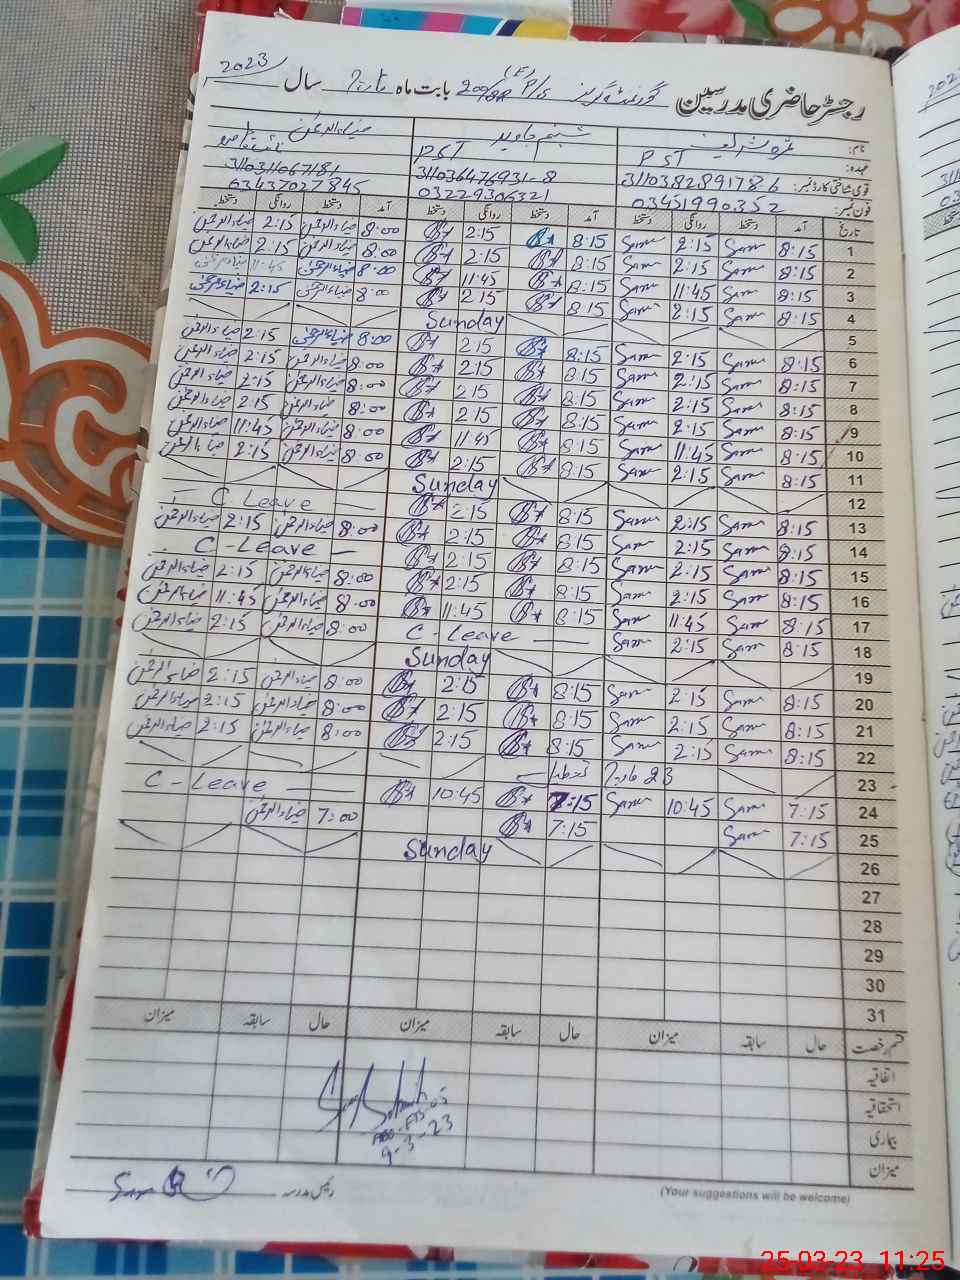 رجسٹر حاضری مدرسین گورنمنٹ گرلز (E) P/S بابت ماہ مارچ سال 2023
نام: شبنم جاوید ضیاء الرحمن
عہدہ: PST PST
قومی شناختی کارڈ نمبر: 311038289178-6 31103647693 1-8 311031106 7181
فون نمبر: 03451990352 03229306321 03437027845
تاریخ آمد دستخط روانگی دستخط آمد دستخط روانگی دستخط آمد دستخط روانگی دستخط
1 8:15 Sam 2:15 Sam 8:15 2:15 8:00 ضیاء الرحمن 2:15 ضیاء الرحمن
2 8:15 Sam 2:15 Sam 8:15 2:15 8:00 ضیاء الرحمن 2:15 ضیاء الرحمن
3 8:15 Sam 11:45 Sam 8:15 11:45 8:00 ضیاء الرحمن 11:45 ضیاء الرحمن
4 8:15 Sam 2:15 Sam 8:15 2:15 8:00 ضیاء الرحمن 2:15 ضیاء الرحمن
5 Sunday
6 8:15 Sam 2:15 Sam 8:15 2:15 8:00 ضیاء الرحمن 2:15 ضیاء الرحمن
7 8:15 Sam 2:15 Sam 8:15 2:15 8:00 ضیاء الرحمن 2:15 ضیاء الرحمن
8 8:15 Sam 2:15 Sam 8:15 2:15 8:00 ضیاء الرحمن 2:15 ضیاء الرحمن
9 8:15 Sam 2:15 Sam 8:15 2:15 8:00 ضیاء الرحمن 2:15 ضیاء الرحمن
10 8:15 Sam 11:45 Sam 8:15 11:45 8:00 ضیاء الرحمن 11:45 ضیاء الرحمن
11 8:15 Sam 2:15 Sam 8:15 2:15 8:00 ضیاء الرحمن 2:15 ضیاء الرحمن
12 Sunday
13 8:15 Sam 2:15 Sam 8:15 2:15 C-Leave
14 8:15 Sam 2:15 Sam 8:15 2:15 8:00 ضیاء الرحمن 2:15 ضیاء الرحمن
15 8:15 Sam 2:15 Sam 8:15 2:15 C-Leave
16 8:15 Sam 2:15 Sam 8:15 2:15 8:00 ضیاء الرحمن 2:15 ضیاء الرحمن
17 8:15 Sam 11:45 Sam 8:15 11:45 8:00 ضیاء الرحمن 11:45 ضیاء الرحمن
18 8:15 Sam 2:15 Sam C-Leave 8:00 ضیاء الرحمن 2:15 ضیاء الرحمن
19 Sunday
20 8:15 Sam 2:15 Sam 8:15 2:15 8:00 ضیاء الرحمن 2:15 ضیاء الرحمن
21 8:15 Sam 2:15 Sam 8:15 2:15 8:00 ضیاء الرحمن 2:15 ضیاء الرحمن
22 8:15 Sam 2:15 Sam 8:15 2:15 8:00 ضیاء الرحمن 2:15 ضیاء الرحمن
23 23 مارچ تعطیل
24 7:15 Sam 10:45 Sam 7:15 10:45 C-Leave
25 7:15 Sam 7:15 7:00 ضیاء الرحمن
26 Sunday
27
28
29
30
31
قسم رخصت حال سابقہ میزان حال سابقہ میزان حال سابقہ میزان
اتفاقیہ
استحقاقیہ
بیماری
میزان
9-3-23
رئیس مدرسہ
(Your suggestions will be welcome)
25-03-23 11:25